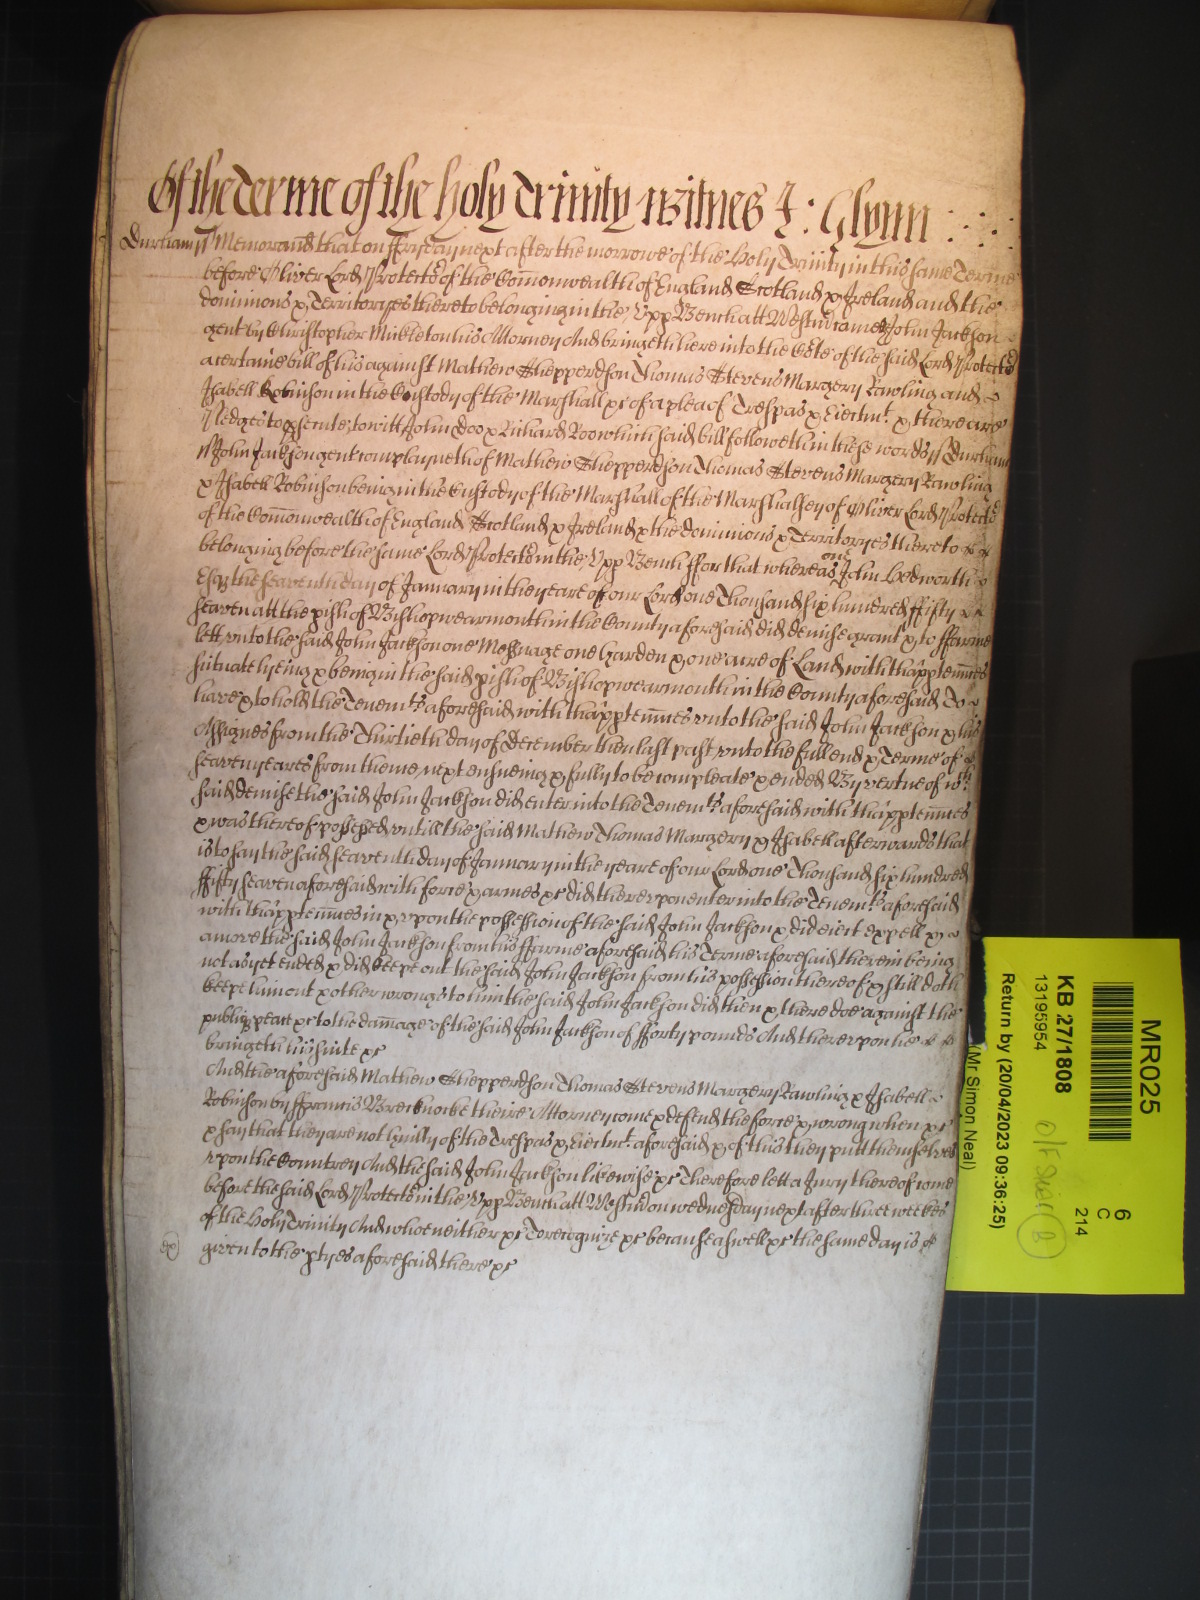 Of the Terme of the Holy Trinity witnes J: Glynn
Durham ss Memorand that on ffryday next after the morrowe of the Holy Trinity in this same Terme
before Oliver Lord Protector of the Comonwealth of England Scotland & Ireland and the
dominions & Territoryes thereto belonging in the Upp Bench att Westm came John Jackson
gent by Christopher Mickleton his Attorney And bringeth here into the Cote of the said Lord Protector
a certaine bill of his against Mathew Shepperdson Thomas Stevens Margery Rawling and
Isabell Robinson in the Custody of the Marshall &c of a plea of Trespas & Eiectmt & there are
Pledges to psecute; to witt John Doo & Richard Roo which said bill followeth in these words ss Durham
ss John Jackson gent complayneth of Mathew Shepperdson Thomas Stevens Margery Rawling
& Isabell Robinson being in the Custody of the Marshall of the Marshalsey of Oliver Lord Protector
of the Comonwealth of England Scotland & Ireland & the dominions & Territoryes thereto
belonging before the same Lord Protector in the Upp Bench ffor that whereas one John Hedworth
Esq the seaventh day of January in the yeare of our Lord one Thousand six hundred ffifty
seaven att the pish of Bishopwearmouth in the County aforesaid did demise grant & to ffarme
lett unto the said John Jackson one Messuage one Garden & one acre of Land with thapptennces
scituate lyeing & being in the said pish of Bishopwearmouth in the County aforesaid To
have & to hold the Tenemts aforesaid with thapptennces unto the said John Jackson & his
Assignes from the Thirtieth day of December then last past, unto the full end & Terme of
seaven yeares from thence next ensueing & fully to be compleate & ended By vertue of wch
said demise the said John Jackson did enter into the Tenemts aforesaid with thapptennces
& was thereof possessed, untill the said Mathew Thomas Margery & Isabell afterwards that
is to say the said seaventh day of January in the yeare of our Lord one Thousand six hundred
ffifty seaven aforesaid with force & armes &c did thereupon enter into the Tenemts aforesaid
with thapptennces in & upon the possession of the said John Jackson & did eiect expell &
amove the said John Jackson from his ffarme aforesaid his Terme aforesaid therein being
not as yet ended & did keepe out the said John Jackson from his possession thereof & still doth
keepe him out & other wrongs to him the said John Jackson did then & there doe against the
publiq peace &c to the damage of the said John Jackson of fforty pounds And thereupon he
bringeth his suite &c
And the aforesaid Mathew Shepperdson Thomas Stevens Margery Rawling & Isabell
Robinson by ffrancis Brecknocke theire Attorney come & defend the force & wrong when &c
& say that they are not Guilty of the Trespas & Eiectmt aforesaid & of this they putt themselves
upon the Countrey And the said John Jackson likewise &c Therefore lett a Jury thereof come
before the said Lord Protector in the Upp Bench att Westm on wednesday next after three weekes
of the Holy Trinity And who neither &c To recognize &c because aswell &c the same day is
given to the ptyes aforesaid there &c
MR025
6
C
214
KB 27/1808
13195954
Return by (20/04/2023 09:36:25)
(Mr Simon Neal)